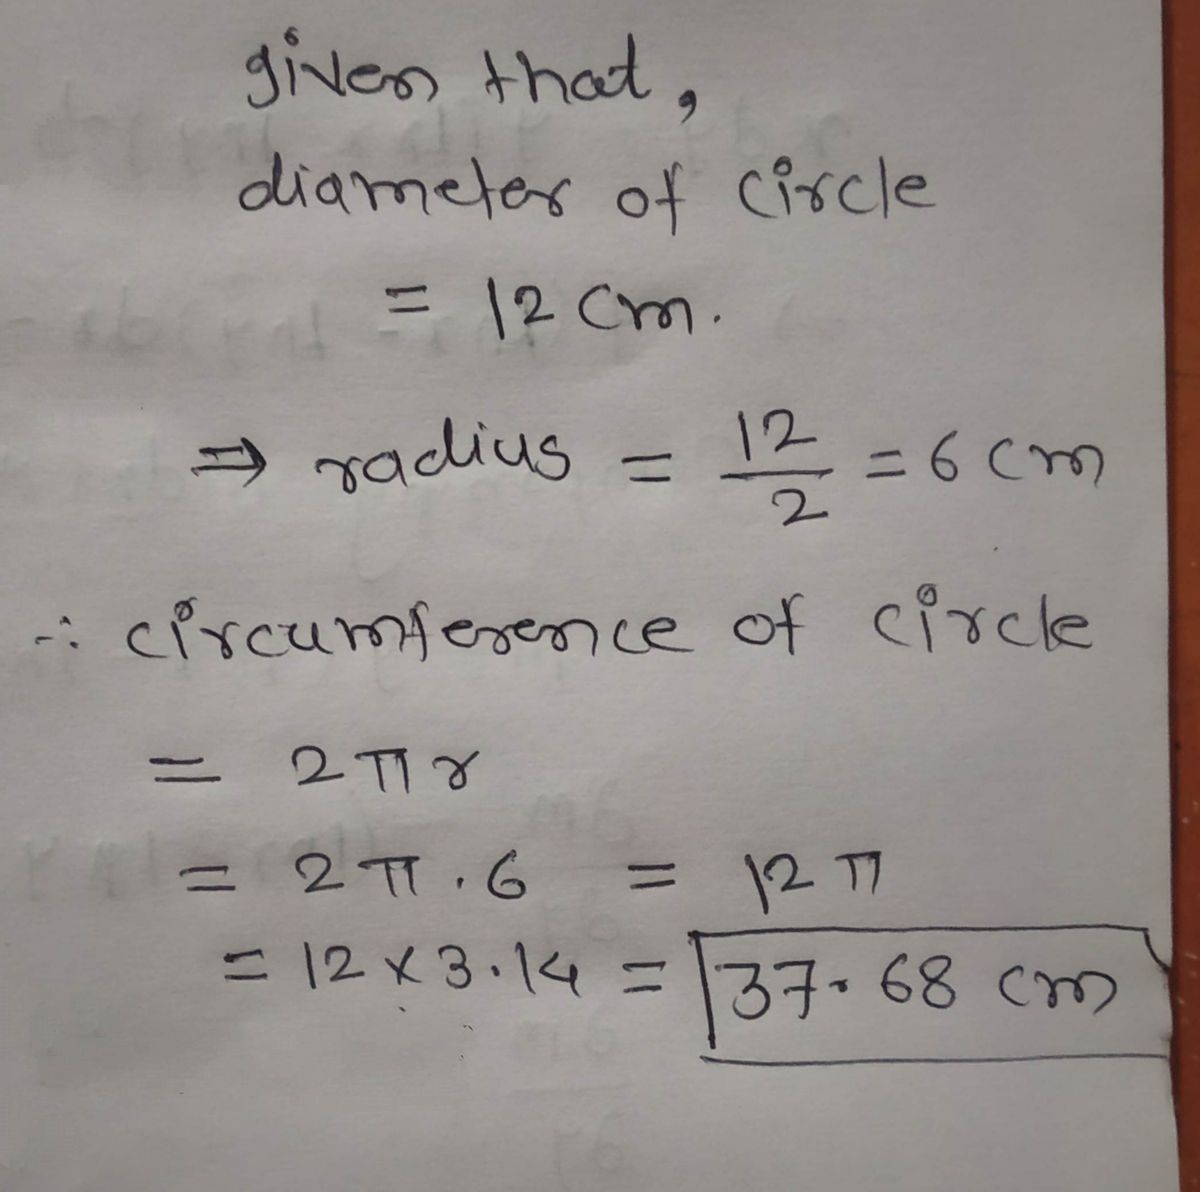 given that,
diameter of circle
= 12 cm.
⇒ radius = 12/2 = 6 cm
∴ circumference of circle
= 2πr
= 2π.6 = 12π
= 12 × 3.14 = 37.68 cm